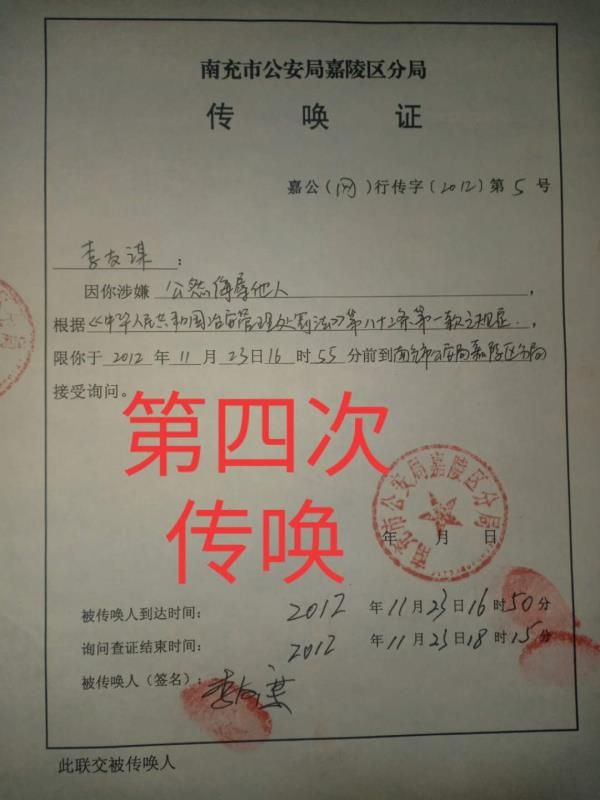 南充市公安局嘉陵区分局
传 唤 证
嘉公（网）行传字（2012）第5号
李友谋：
因你涉嫌 公然侮辱他人，
根据《中华人民共和国治安管理处罚法》第八十二条第一款之规定，
限你于2012年11月23日16时55分前到南充市公安局嘉陵区分局
接受询问。
第四次
传唤
南充市公安局嘉陵区分局
年 月 日
被传唤人到达时间： 2012 年11月23日16时50分
询问查证结束时间： 2012 年11月23日18时15分
被传唤人（签名）： 李友谋
此联交被传唤人